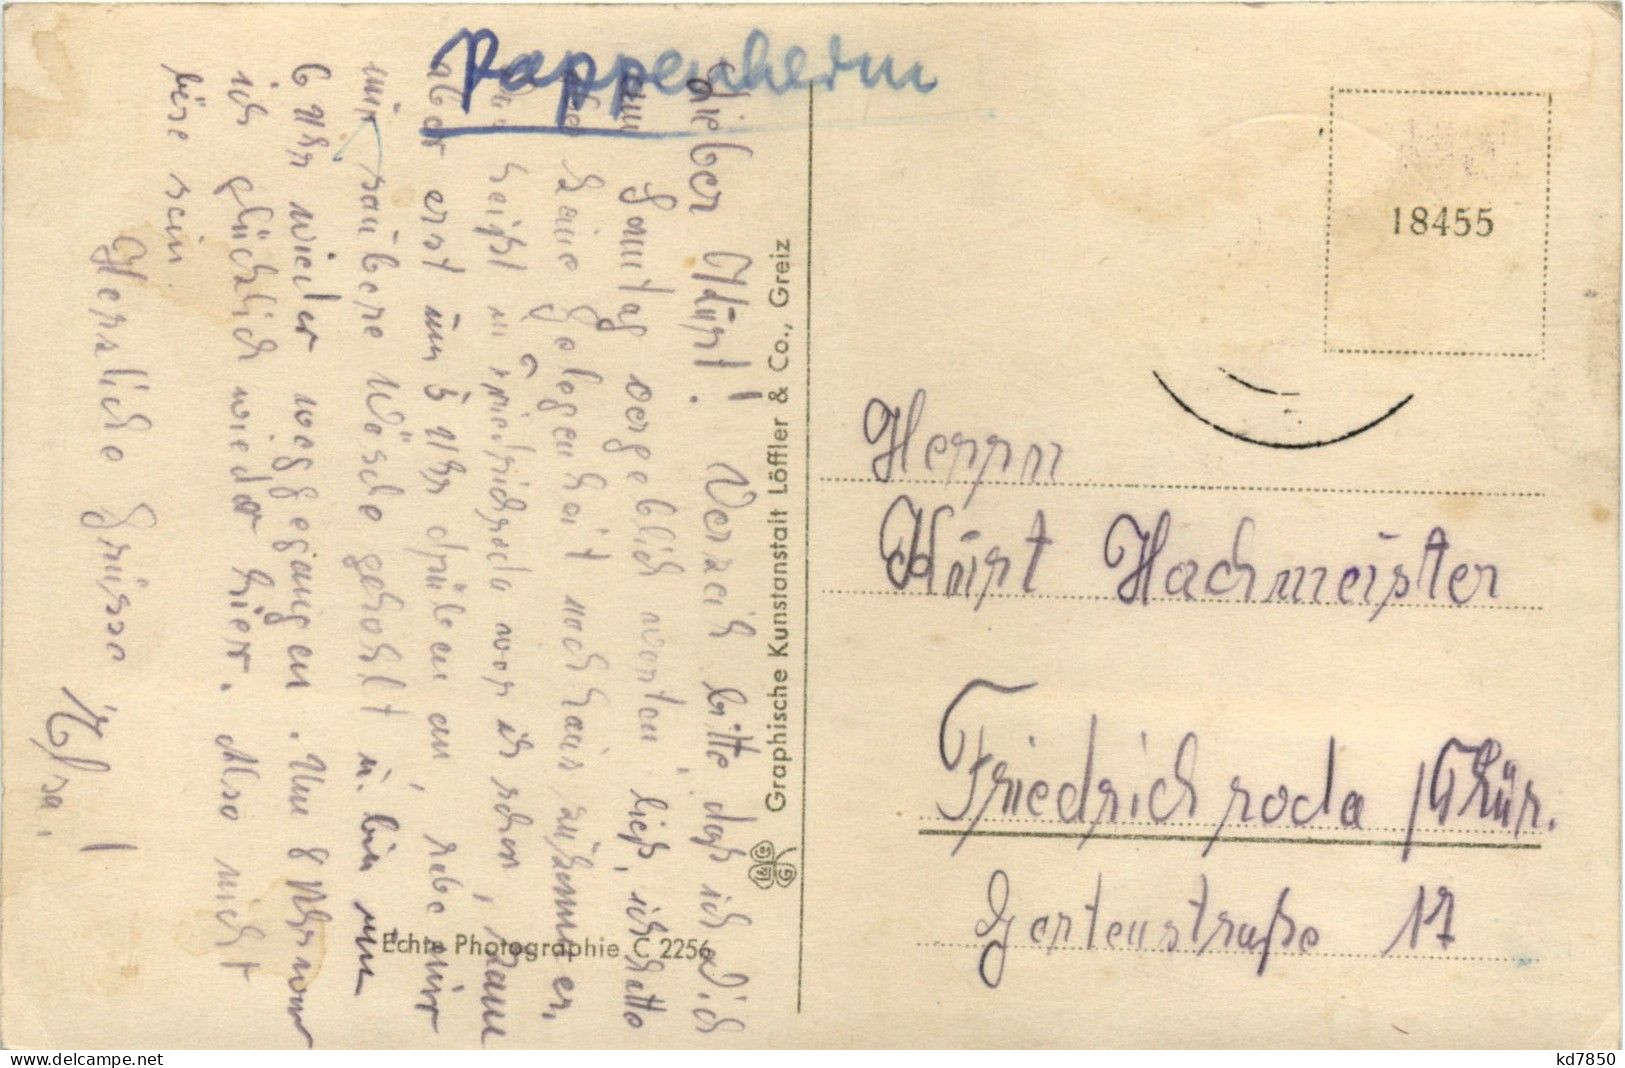 Pappenheim
Lieber Kurt! Verzeih bitte daß ich Dich
am Sonntag vergeblich warten ließ, ich hatte
keine Gelegenheit nach haus zukommen.
heißt in Friedrichroda war ich schon, kam
aber erst um 5 Uhr drüben an, habe mir
saubere Wäsche geholt u. bin um
6 Uhr wieder weggegangen. Um 8 Uhr war
ich glücklich wieder hier. Also nicht
böse sein
Herzliche Grüsse
Graphische Kunstanstalt Löffler & Co., Greiz
Echte Photographie C 2256
18455
Herrn
Kurt Hachmeister
Friedrichroda /Thür.
Gartenstraße 17
kd7850